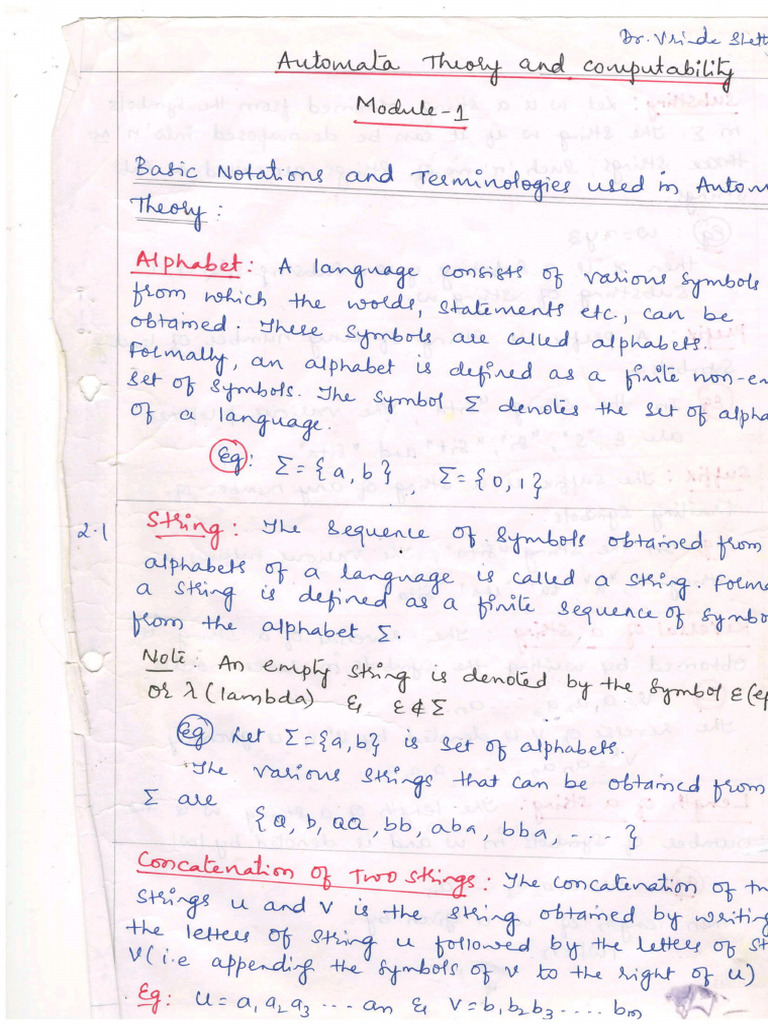 Dr. Vrinde Shett
Automata Theory and Computability
Module-1
Basic Notations and Terminologies used in Autom
Theory:
Alphabet: A language consists of various symbols
from which the words, statements etc., can be
obtained. These symbols are called alphabets.
Formally, an alphabet is defined as a finite non-em
set of symbols. The symbol Σ denotes the set of alpha
of a language.
Eg: Σ={a,b}, Σ={0,1}
2.1 String: The sequence of symbols obtained from
alphabets of a language is called a string. Forma
a string is defined as a finite sequence of symbo
from the alphabet Σ.
Note: An empty string is denoted by the symbol ε(ep
or λ(lambda) & ε∉Σ
eg Let Σ={a,b} is set of alphabets.
The various strings that can be obtained from
Σ are
{a, b, aa, bb, aba, bba, .... }
Concatenation of Two Strings: The concatenation of tw
strings u and v is the string obtained by writing
the letters of string u followed by the letters of st
v(i.e appending the symbols of v to the right of u)
Eg: u=a₁a₂a₃ ... an & v=b₁b₂b₃ .... bm